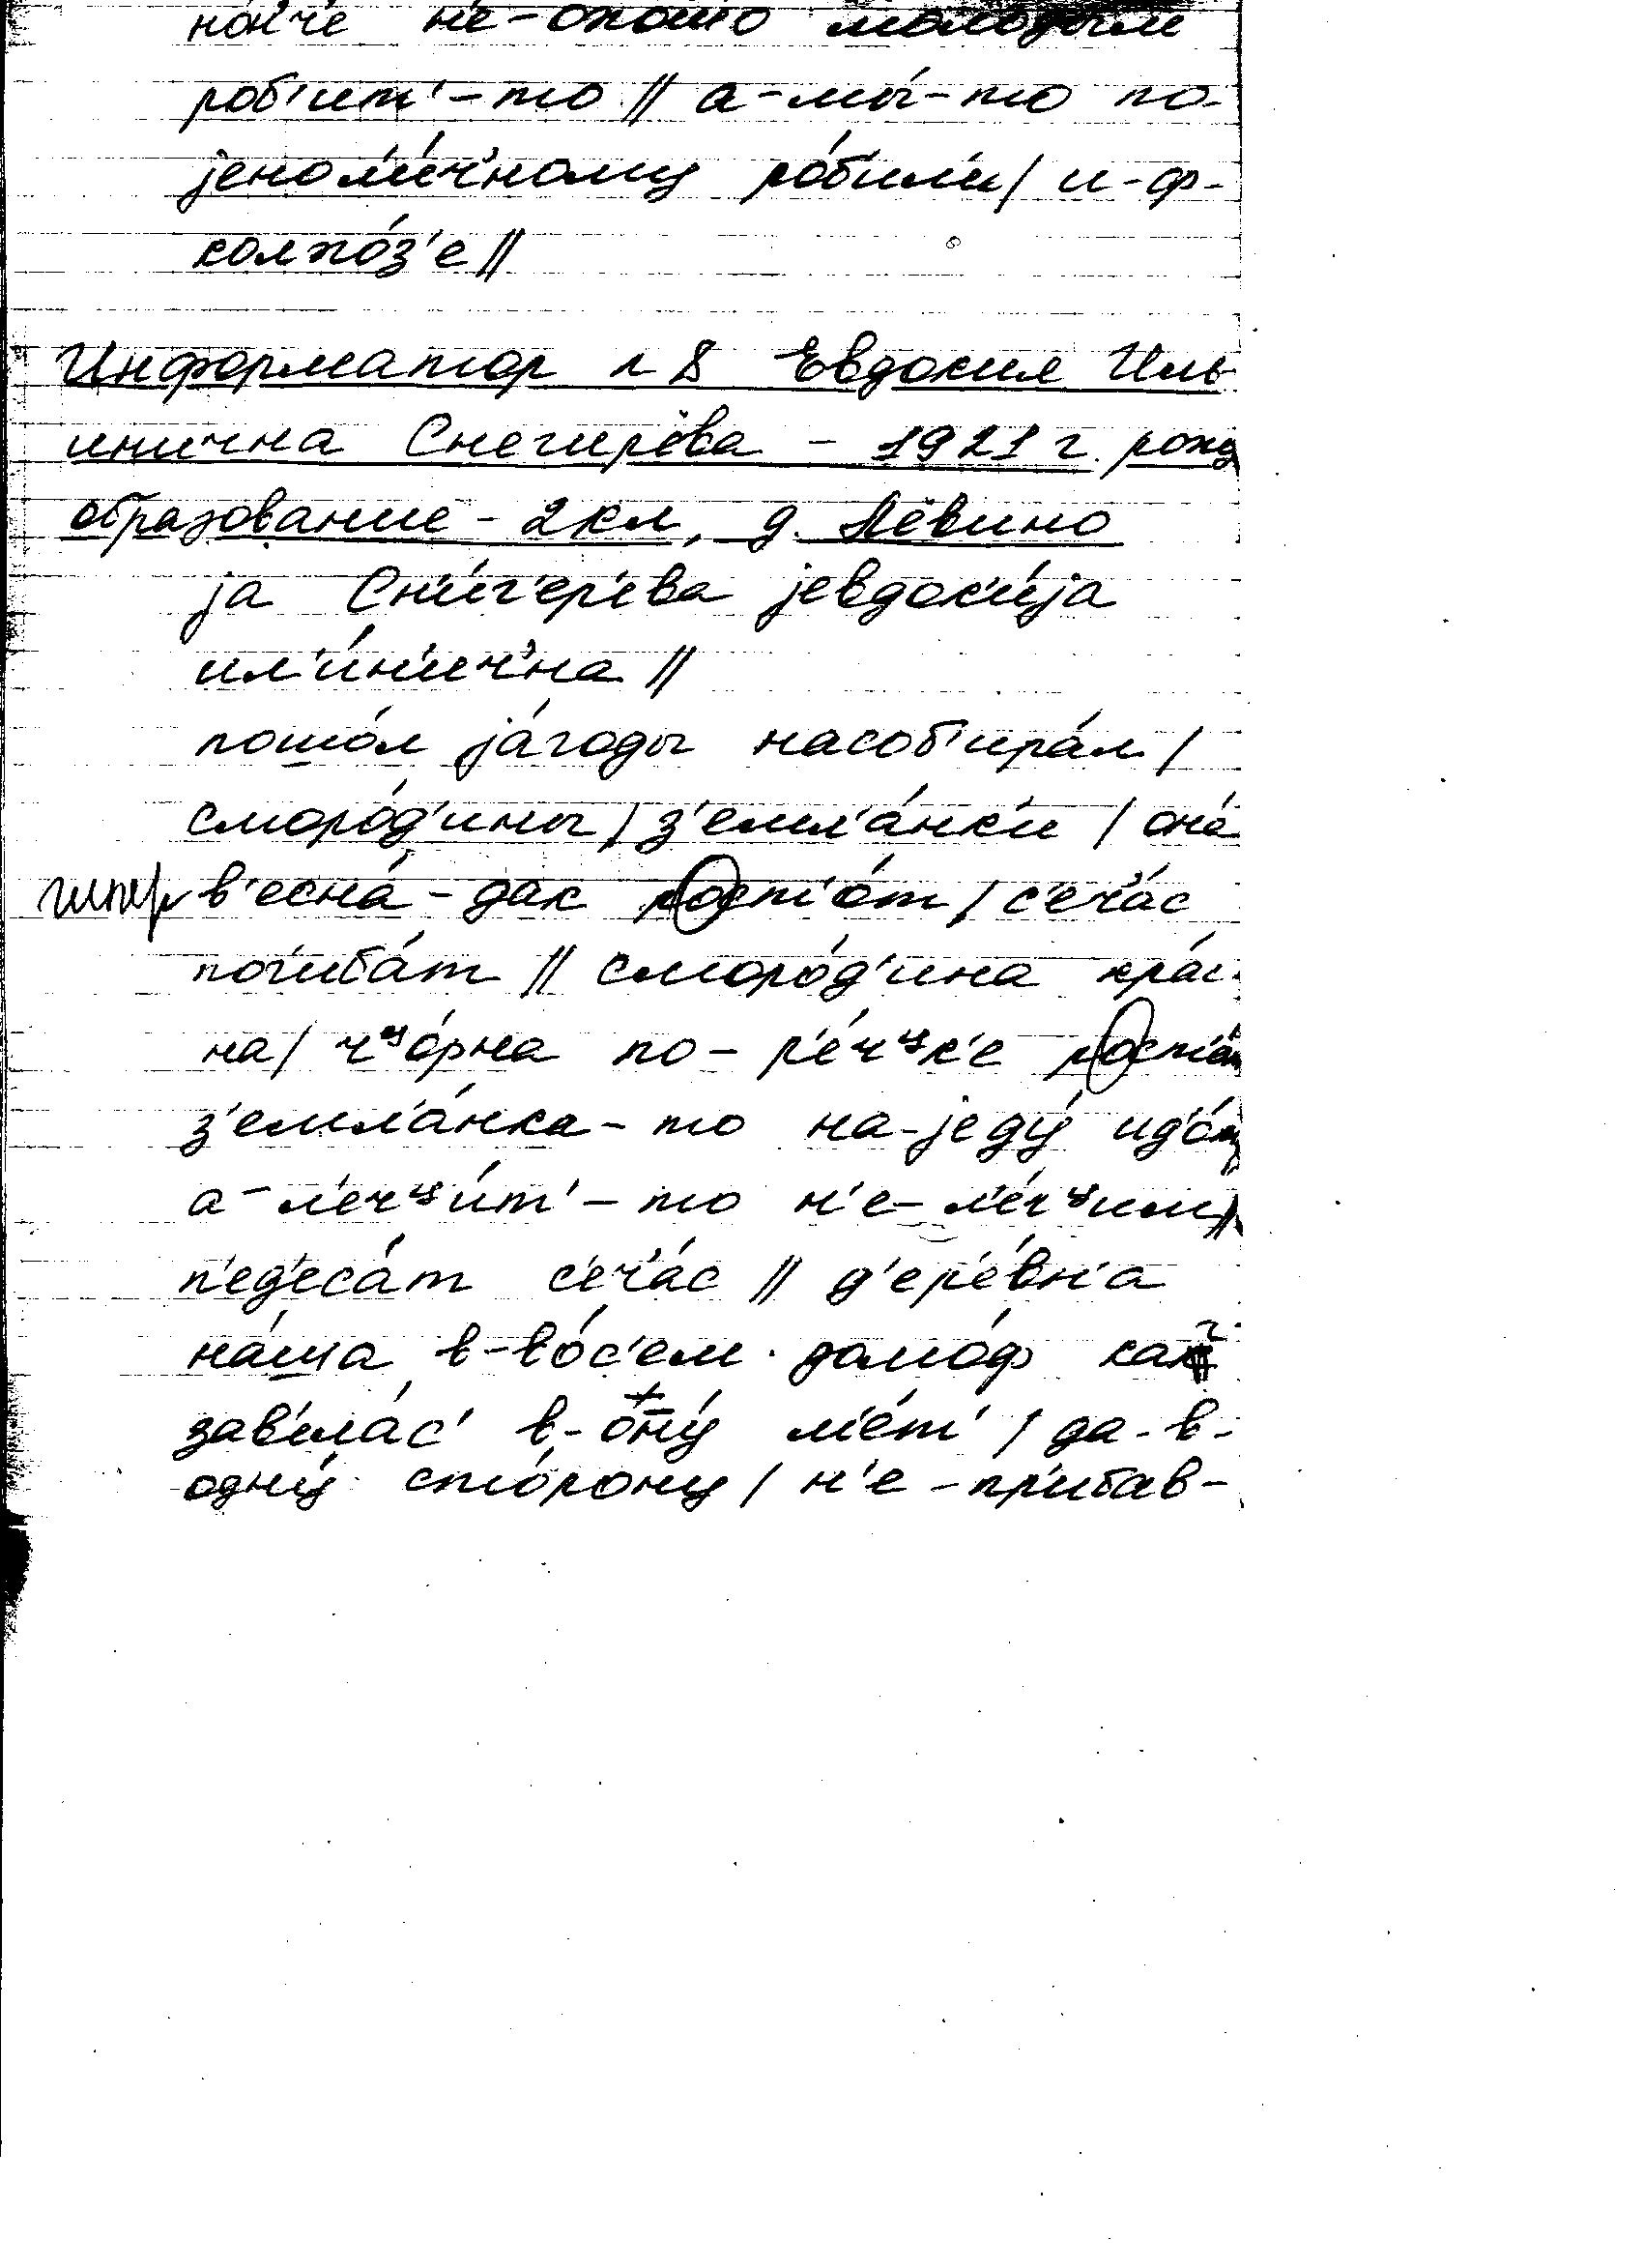 но́н'че н'е-охо́шо молоды́м
ро́б'ит'-то // а-мы́-то по-
jеномл'и́ч'ному ро́бил'и / и-ф-
колхо́з'е //
Информатор № 8 Евдокия Иль
инична Снегирёва - 1921 г. рожд
образование - 2 кл, д. Лёвино
jа Сн'и́г'ер'ева jевдок'и́jа
ил'и́н'ич'на //
пошо́л jа́годы насоб'ира́л /
сморо́д'ины / з'емл'а́нк'и / оне́
в'есна́ - дак рост'о́т / с'еч'а́с
пог'иба́т // сморо́д'ина кра́с-
на / чᶣо́рна по- р'е́чᶣк'е рост'о́т
з'емл'а́нка-то на-jеду́ ид'о́т
а-л'ечᶣи́т'-то н'е-л'е́чᶣим //
п'ед'еса́т с'еч'а́с // д'ер'е́вн'а
на́ша в-во́с'ем домо́ф как
зав'ила́с' в-ону́ м'е́т' / да-в-
одну́ сто́рону / н'е-пр'ибав-